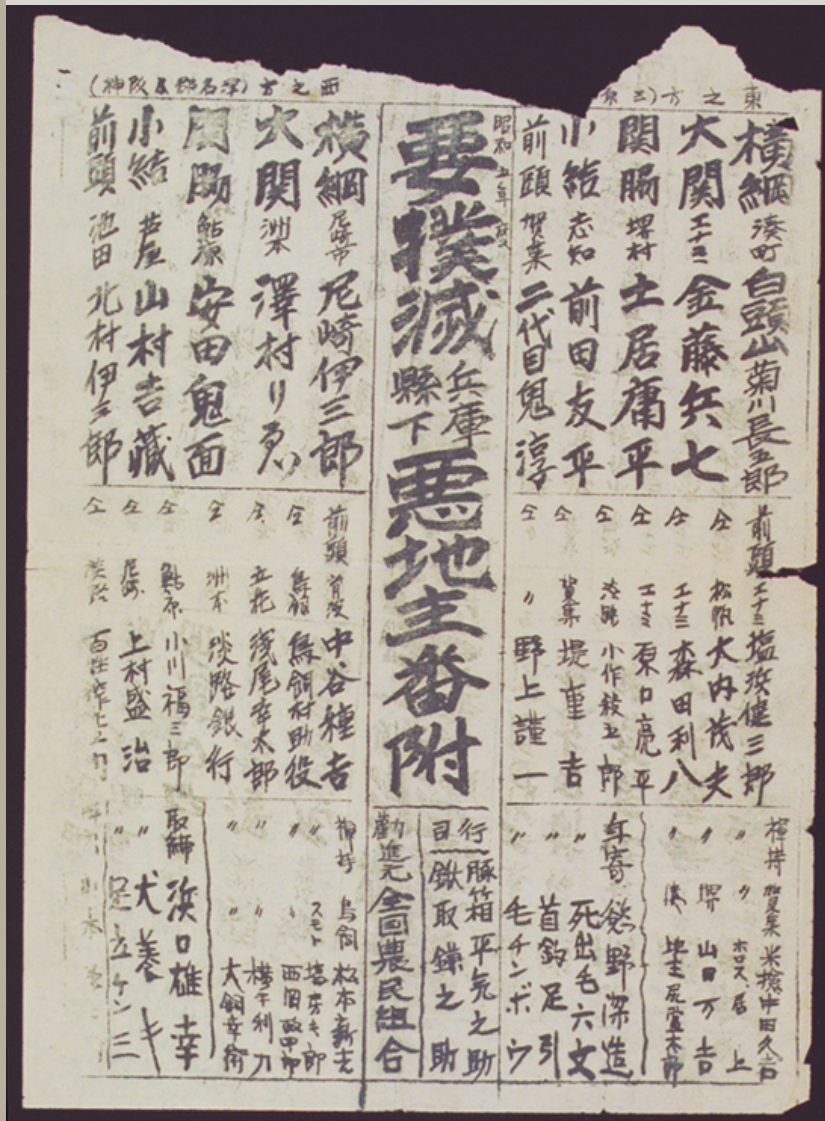 東之方(三原
横綱 湊町 白頭山菊川長五郎
大関 エナミ 金藤兵七
関脇 堺村 土居庸平
小結 志知 前田友平
前頭 賀集 二代目鬼淳
前頭 エナミ 塩浜健三郎
仝 松帆 大内茂夫
仝 エナミ 森田利八
仝 エナミ 原口亮平
仝 小作絞五郎
仝 賀集 堤重吉
仝 〃 野上謹一
褌持 賀集 米搶中田久吉
〃 〃 ホロス居上
〃 堺 山田万吉
〃 湊
年寄 慾野深造
〃 死出毛六文
〃 首釣足引
〃 毛チンボウ
昭和五年度
要撲滅兵庫縣下悪地主番附
行司
豚箱平気之助
鍬取鎌之助
勧進元 全国農民組合
西之方(津名郡及阪神)
横綱 尼崎市 尼崎伊三郎
大関 洲本 澤村りゑ
関脇 鮎原 安田鬼面
小結 芦屋 山村吉藏
前頭 池田 北村伊三郎
前頭 中谷種吉
仝 鳥飼 鳥飼村助役
仝 立花 浅尾幸太郎
仝 洲本 淡路銀行
仝 鮎原 小川福三郎
仝 尼崎 上村盛治
仝 淡路
褌持 鳥飼 松本新吉
〃 スモト
〃 〃 西岡政四郎
〃 〃 横午利刀
〃 〃 犬飼幸衛
取締 浜口雄幸
〃 犬養キ
〃 足立ケン三